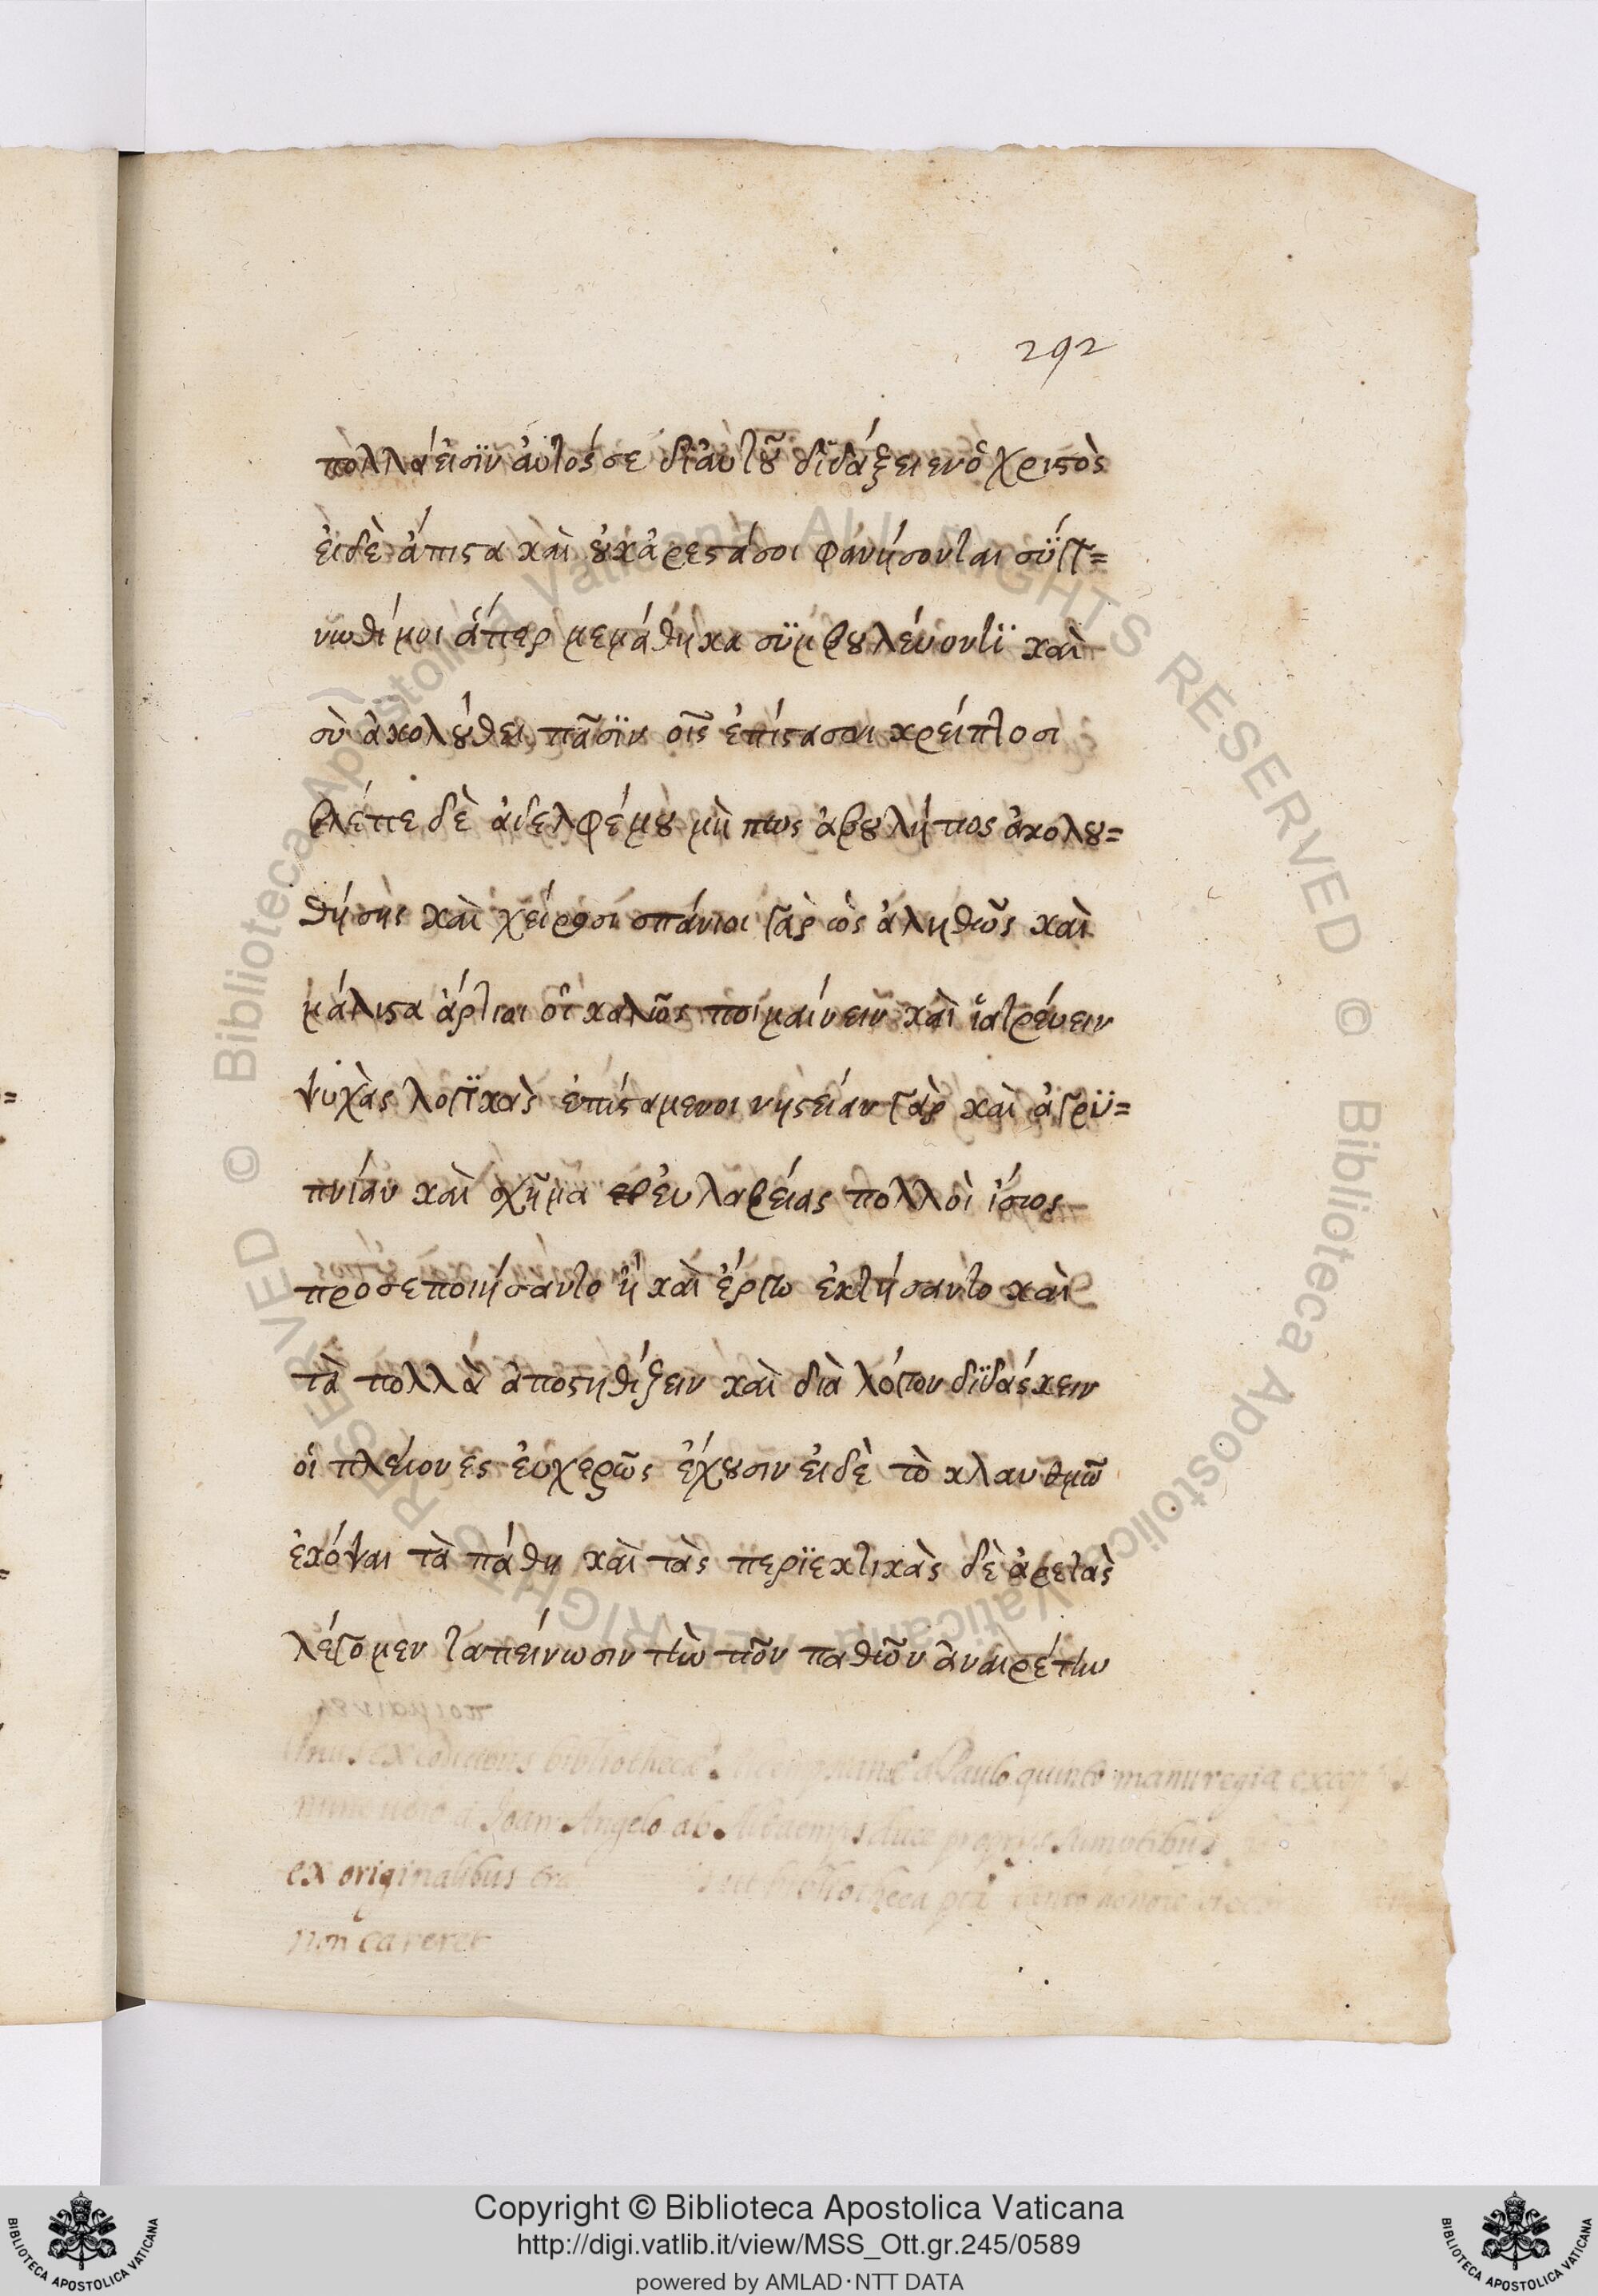 292
πολλά ἐισϊν ἀυτός σε δἰ ἀυτοῦ δϊδάξειεν ὁ χριστὸς
ἐι δὲ ἄπιστα καὶ οὐκ ἀρεστά σοι φανήσονται σύγγ=
νωθί μοι ἅπερ μεμάθηκα σϋμβουλέυοντϊ καὶ
σὺ ἀκολούθει πᾶσϊν οἷς ἐπίστασαι κρείττοσι
βλέπε δὲ ἀδελφέ μου μὴ πως ἀβουλήτως ἀκολου=
θήσης καὶ χείροσι σπάνιοι γὰρ ὡς ἀληθῶς καὶ
μάλιστα ἄρτιοι οἱ καλῶς ποιμαίνειν καὶ ἰατρέυειν
ψυχὰς λογϊκὰς ἐπιστάμενοι νηστείαν γὰρ καὶ ἀγρϋ=
πνίαν καὶ σχῆμα ἐυλαβείας πολλοὶ ἴσως
προσεποιήσαντο ἢ καὶ ἔργω ἐκτήσαντο καὶ
τὰ πολλὰ ἀποστηθίζειν καὶ διὰ λόγον δϊδάσκειν
οἱ πλείονες ἐυχερῶς ἔχουσιν ἐι δὲ τὸ κλαυθμῶ
ἐκόψαι τὰ πάθη καὶ τὰς περϊεκτικὰς δὲ ἀρετὰς
λέγομεν ταπείνωσιν τὴν τῶν παθῶν ἀναιρέτην
bibliothecæ a Paulo quinto manu regia
a Joan Angelo ab Altaemps duce proprijs sumptibus
ex originalibus ut bibliotheca
non careret
Copyright © Biblioteca Apostolica Vaticana
http://digi.vatlib.it/view/MSS_Ott.gr.245/0589
powered by AMLAD·NTT DATA
BIBLIOTECA APOSTOLICA VATICANA
BIBLIOTECA APOSTOLICA VATICANA
© Biblioteca Apostolica Vaticana ALL RIGHTS RESERVED © Biblioteca Apostolica Vaticana ALL RIGHTS RESERVED